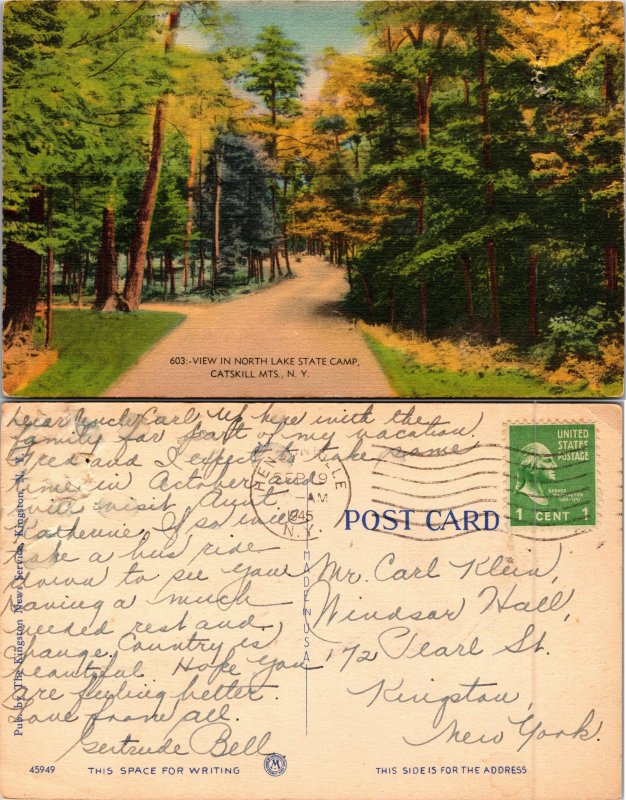 603:-VIEW IN NORTH LAKE STATE CAMP,
CATSKILL MTS., N. Y.
Dear Uncle Carl Up here with the
family for part of my vacation.
Fred and I expect to take some
time in October and
will visit Aunt
Katherine. If so will
take a bus ride
down to see you
Having a much
needed rest and
change. Country is
beautiful. Hope you
are feeling better.
Love from all.
Gertrude Bell
Pub. by The Kingston News Service, Kingston, N. Y.
9
AM
1945
N.Y.
MADE IN USA
UNITED
STATES
POSTAGE
GEORGE
WASHINGTON
1 CENT 1
POST CARD
Mr. Carl Klein,
Windsor Hall,
172 Pearl St.
Kingston,
New York.
45949
THIS SPACE FOR WRITING
M
THIS SIDE IS FOR THE ADDRESS